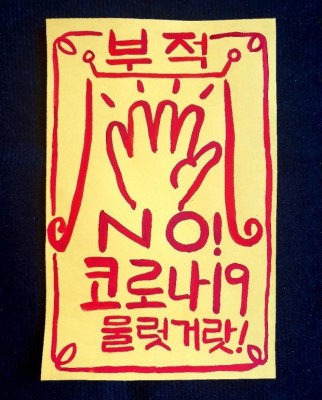 부적
NO!
코로나19
물럿거랏!